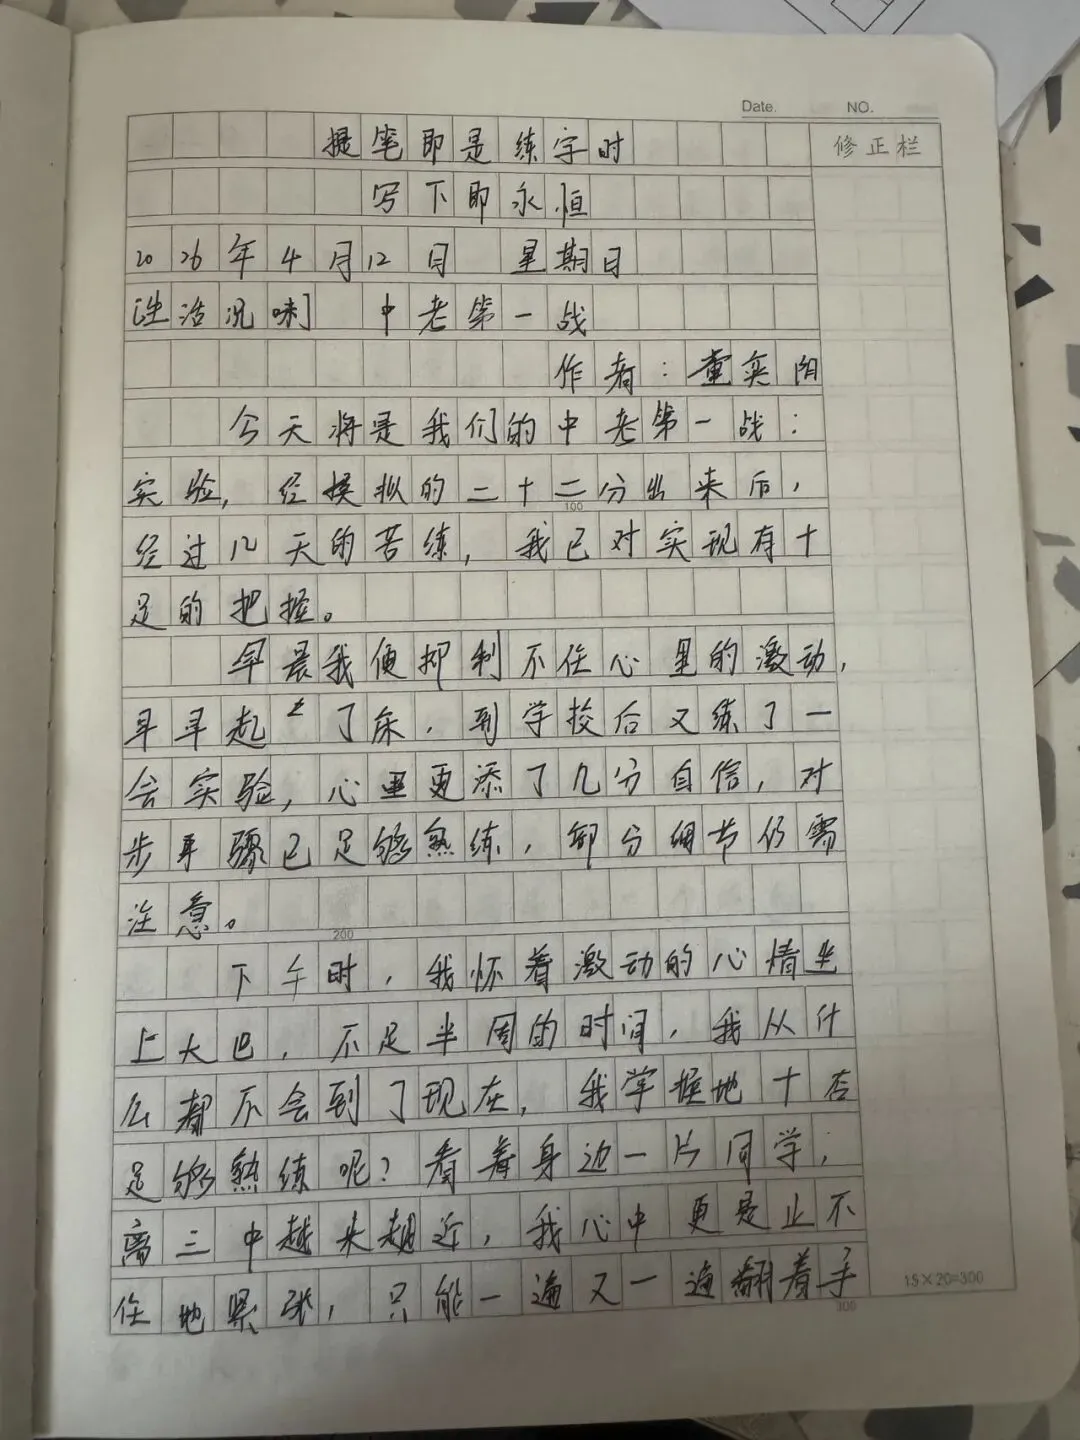 Date.
NO.
修正栏
提笔即是练字时
写下即永恒
2026年4月12日 星期日
[生活况味] 中考第一战
作者：童奕阳
今天将是我们的中考第一战：
实验，经模拟的二十二分出来后，
经过12天的苦练，我已对实现有十
足的把握。
早晨我便抑制不住心里的激动，
早早起了床，到学校后又练了一
会实验，心里更添了几分自信，对
步骤已足够熟练，部分细节仍需
注意。
200
下午时，我怀着激动的心情坐
上大巴，不足半周的时间，我从什
么都不会到了现在，我掌握地十否
足够熟练呢？看着身边一片同学，
离三中越来越近，我心中更是止不
住地紧张，只能一遍又一遍翻着手
100
15×20=300
300